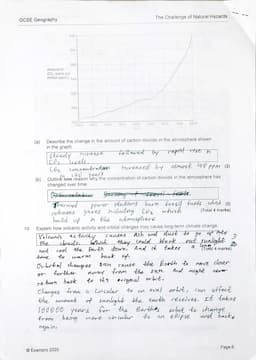 GCSE Geography
The Challenge of Natural Hazards
(a) Describe the change in the amount of carbon dioxide in the atmosphere shown
in the graph.
Steady increase followed by rapid rise in
CO2 levels.
CO2 concentration increased by almost 100 ppm
(2)
(b) Outline one reason why the concentration of carbon dioxide in the atmosphere has
changed over time.
Thermal power stations burn fossil fuels which
releases gases including CO2 which
build up in the atmosphere
(2)
(Total 4 marks)
Explain how volcanic activity and orbital changes may cause long-term climate change.
Volcanic activity causes Ash and dust to go up into
the clouds. Which they could block out sunlight
and cool the Earth down. And it takes a long
time to warm back up.
Orbital changes can cause the Earth to move closer
or further away from the sun. And might never
return back to its original orbit.
Changes from a circular to an oval orbit, can affect
the amount of sunlight the earth receives. It takes
100000 years for the Earths orbit to change
from being more circular to an ellipse and back
again.
© Exampro 2020
Page 6